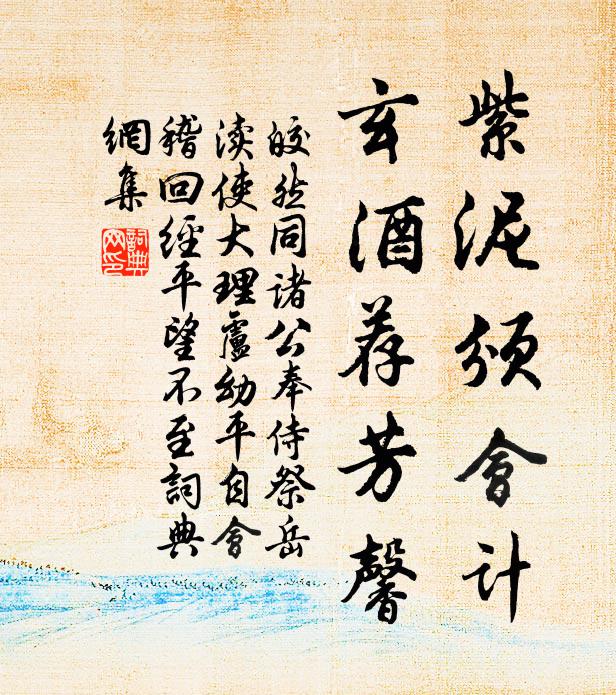 紫泥颁會计
玄酒荐芳馨
皎然同诸公奉侍祭岳
渎使大理盧幼平自會
稽回經平望不至詞典
網集
詞典
网印